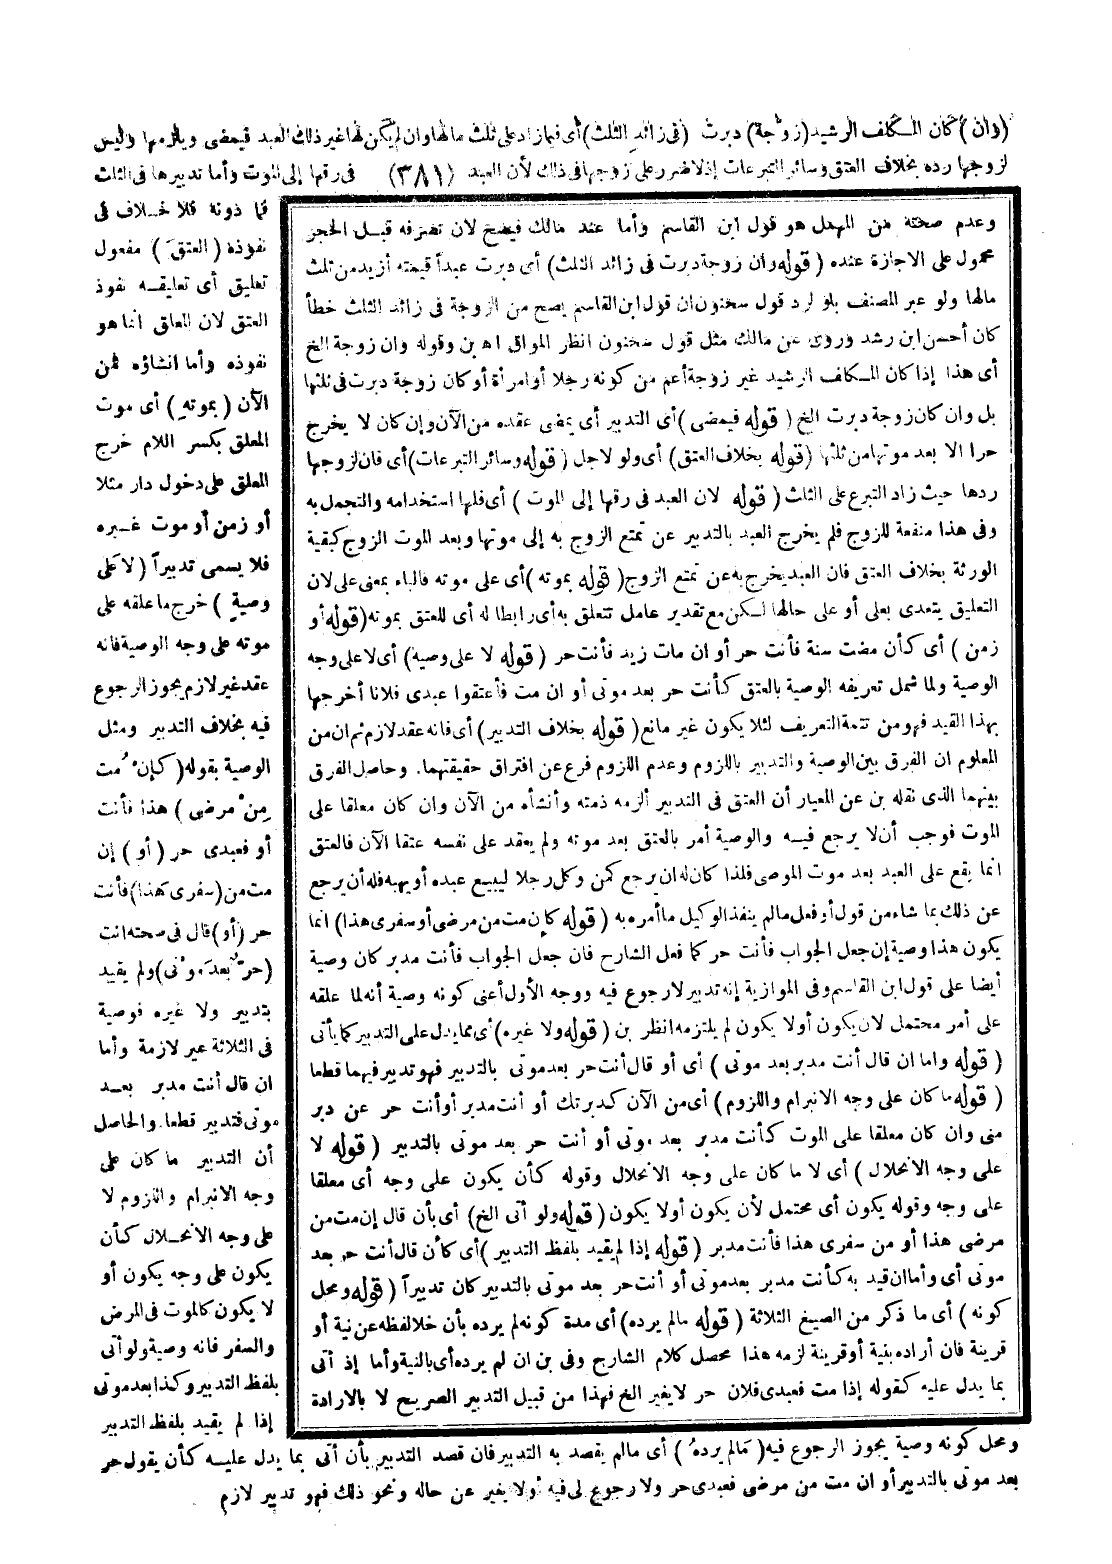 (وان) كان المكلف الرشيد (زوجة) دبرت (في زائد الثلث) أى فيما زاد على ثلث مالها وان لم يكن لها غير ذلك العبد فيمضى ويلزمها وليس
لزوجها رده بخلاف العتق وسائر التبرعات إذ لا ضرر على زوجها فى ذلك لأن العبد (٣٨١) فى رقها إلى الموت وأما تدبيرها فى الثلث
فما دونه فلا خلاف فى
نفوذه (العتق) مفعول
تعليق أى تعليقه نفوذ
العتق لان المعلق انما هو
نفوذه وأما انشاؤه فمن
الآن (بموته) أى موت
المعلق بكسر اللام خرج
المعلق على دخول دار مثلا
أو زمن أو موت غيره
فلا يسمى تدبيراً (لا على
وصية) خرج ما علقه على
موته على وجه الوصية فانه
عقد غير لازم يجوز الرجوع
فيه بخلاف التدبير ومثل
الوصية بقوله (كإن مت
من مرضى) هذا فأنت
أو فعبدى حر (أو) إن
مت من (سفرى هذا) فأنت
حر (أو) قال فى صحته انت
(حر بعد موتى) ولم يقيد
بتدبير ولا غيره فوصية
فى الثلاثة غير لازمة وأما
ان قال أنت مدبر بعد
موتى فتدبير قطعا والحاصل
أن التدبير ما كان على
وجه الانبرام واللزوم لا
على وجه الانحلال كأن
يكون على وجه يكون أو
لا يكون كالموت فى المرض
والسفر فانه وصية ولو أتى
بلفظ التدبير وكذا بعد موتى
إذا لم يقيد بلفظ التدبير
ومحل كونه وصية يجوز الرجوع فيه (مالم يرده) أى مالم يقصد به التدبير فان قصد التدبير بأن أتى بما يدل عليه كأن يقول حر
بعد موتى بالتدبير أو ان مت من مرضى فعبدى حر ولا رجوع لى فيه أو لا يغير عن حاله ونحو ذلك فهو تدبير لازم
وعدم صحته من المهمل هو قول ابن القاسم وأما عند مالك فيصح لان تصرفه قبل الحجر
محمول على الاجازة عنده (قوله وان زوجة دبرت فى زائد الثلث) أى دبرت عبداً قيمته أزيد من ثلث
مالها ولو عبر المصنف بلو لرد قول سحنون ان قول ابن القاسم يصح من الزوجة فى زائد الثلث خطأ
كان أحسن ابن رشد وروى عن مالك مثل قول سحنون انظر المواق اه بن وقوله وان زوجة الخ
أى هذا إذا كان المكلف الرشيد غير زوجة أعم من كونه رجلا أو امرأة أو كان زوجة دبرت فى ثلثها
بل وان كان زوجة دبرت الخ (قوله فيمضى) أى التدبير أى يمضى عقده من الآن وإن كان لا يخرج
حرا الا بعد موتها من ثلثها (قوله بخلاف العتق) أى ولو لاجل (قوله وسائر التبرعات) أى فان لزوجها
ردها حيث زاد التبرع على الثلث (قوله لان العبد فى رقها إلى الموت) أى فلها استخدامه والتجمل به
وفى هذا منفعة للزوج فلم يخرج العبد بالتدبير عن تمتع الزوج به إلى موتها وبعد الموت الزوج كبقية
الورثة بخلاف العتق فان العبد يخرج به عن تمتع الزوج (قوله بموته) أى على موته فالباء بمعنى على لان
التعليق يتعدى بعلى أو على حالها لكن مع تقدير عامل تتعلق به أى رابطا له أى للعتق بموته (قوله أو
زمن) أى كأن مضت سنة فأنت حر أو ان مات زيد فأنت حر (قوله لا على وصية) أى لا على وجه
الوصية ولما شمل تعريفه الوصية بالعتق كأنت حر بعد موتى أو ان مت فأعتقوا عبدى فلانا أخرجها
بهذا القيد فهو من تتمة التعريف لئلا يكون غير مانع (قوله بخلاف التدبير) أى فانه عقد لازم ثم ان من
المعلوم ان الفرق بين الوصية والتدبير باللزوم وعدم اللزوم فرع عن افتراق حقيقتهما. وحاصل الفرق
بينهما الذى نقله بن عن المعيار أن العتق فى التدبير ألزمه ذمته وأنشأه من الآن وان كان معلقا على
الموت فوجب أن لا يرجع فيه والوصية أمر بالعتق بعد موته ولم يعقد على نفسه عتقا الآن فالعتق
انما يقع على العبد بعد موت الموصى فلذا كان له ان يرجع كمن وكل رجلا ليبيع عبده أو يهبه فله أن يرجع
عن ذلك بما شاء من قول أو فعل مالم ينفذ الوكيل ما أمره به (قوله كإن مت من مرضى أو سفرى هذا) انما
يكون هذا وصية إن جعل الجواب فأنت حر كما فعل الشارح فان جعل الجواب فأنت مدبر كان وصية
أيضا على قول ابن القاسم وفى الموازية إنه تدبير لا رجوع فيه ووجه الأول أعنى كونه وصية أنه لما علقه
على أمر محتمل لان يكون أولا يكون لم يلتزمه انظر بن (قوله ولا غيره) أى مما يدل على التدبير كما يأتى
(قوله واما ان قال أنت مدبر بعد موتى) أى أو قال أنت حر بعد موتى بالتدبير فهو تدبير فيهما قطعا
(قوله ما كان على وجه الانبرام واللزوم) أى من الآن كدبرتك أو أنت مدبر أو أنت حر عن دبر
منى وان كان معلقا على الموت كأنت مدبر بعد موتى أو أنت حر بعد موتى بالتدبير (قوله لا
على وجه الانحلال) أى لا ما كان على وجه الانحلال وقوله كأن يكون على وجه أى معلقا
على وجه وقوله يكون أى محتمل لأن يكون أولا يكون (قوله ولو أتى الخ) أى بأن قال إن مت من
مرضى هذا أو من سفرى هذا فأنت مدبر (قوله إذا لم يقيد بلفظ التدبير) أى كأن قال أنت حر بعد
موتى أى وأما ان قيد به كأنت مدبر بعد موتى أو أنت حر بعد موتى بالتدبير كان تدبيراً (قوله ومحل
كونه) أى ما ذكر من الصيغ الثلاثة (قوله مالم يرده) أى مدة كونه لم يرده بأن خلا لفظه عن نية أو
قرينة فان أراده بنية أو قرينة لزمه هذا محصل كلام الشارح وفى بن ان لم يرده أى بالنية وأما إذ أتى
بما يدل عليه كقوله إذا مت فعبدى فلان حر لا يغير الخ فهذا من قبيل التدبير الصريح لا بالارادة